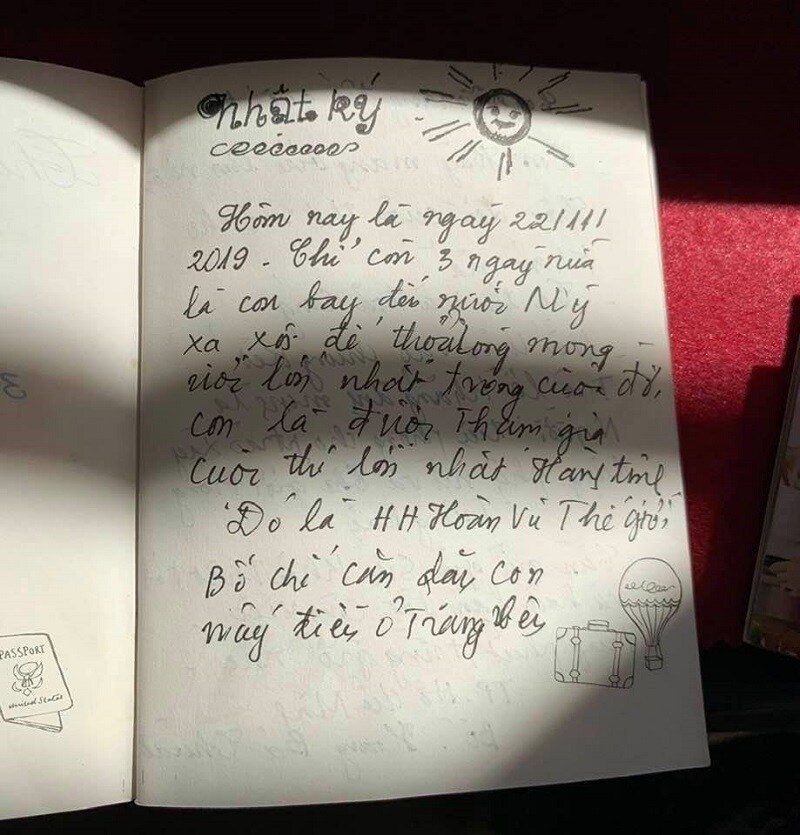 nhật ký
Hôm nay là ngày 22/11/
2019. Chỉ còn 3 ngày nữa
là con bay đến nước Mỹ
xa xôi để thoả lòng mong
ước lớn nhất trong cuộc đời,
con là được Tham gia
cuộc thi lớn nhất Hành tinh
Đó là HH Hoàn Vũ Thế giới
Bố chỉ cần dặn con
mấy điều ở Trang bên
PASSPORT
United States